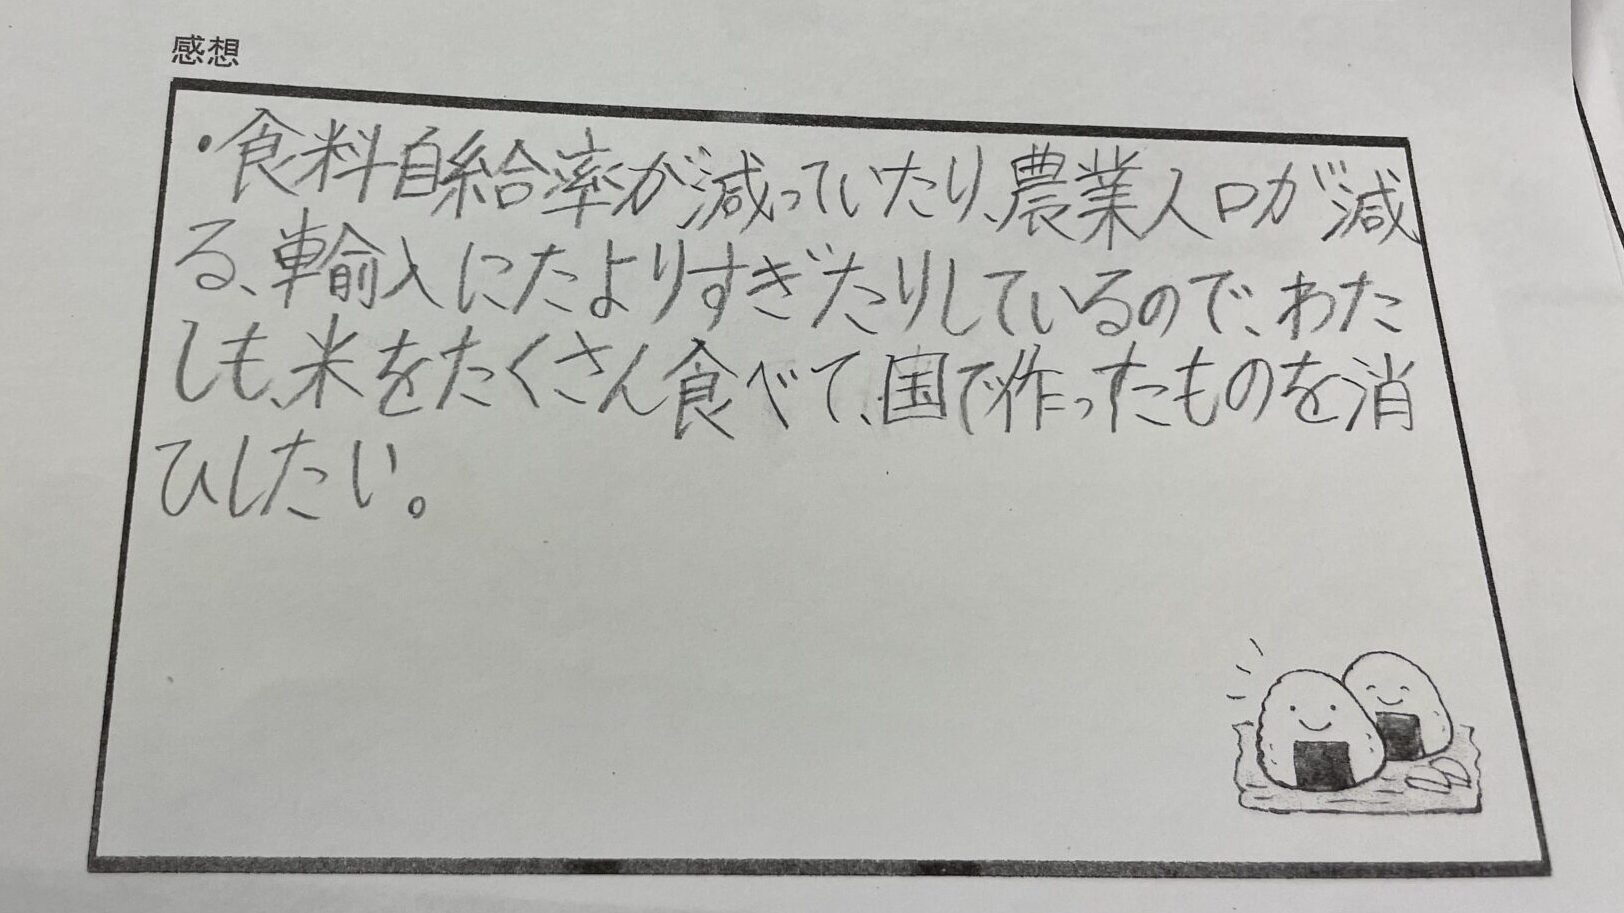 感想
・食料自給率が減っていたり、農業人口が減
る、輸入にたよりすぎたりしているので、わた
しも、米をたくさん食べて、国で作ったものを消
ひしたい。